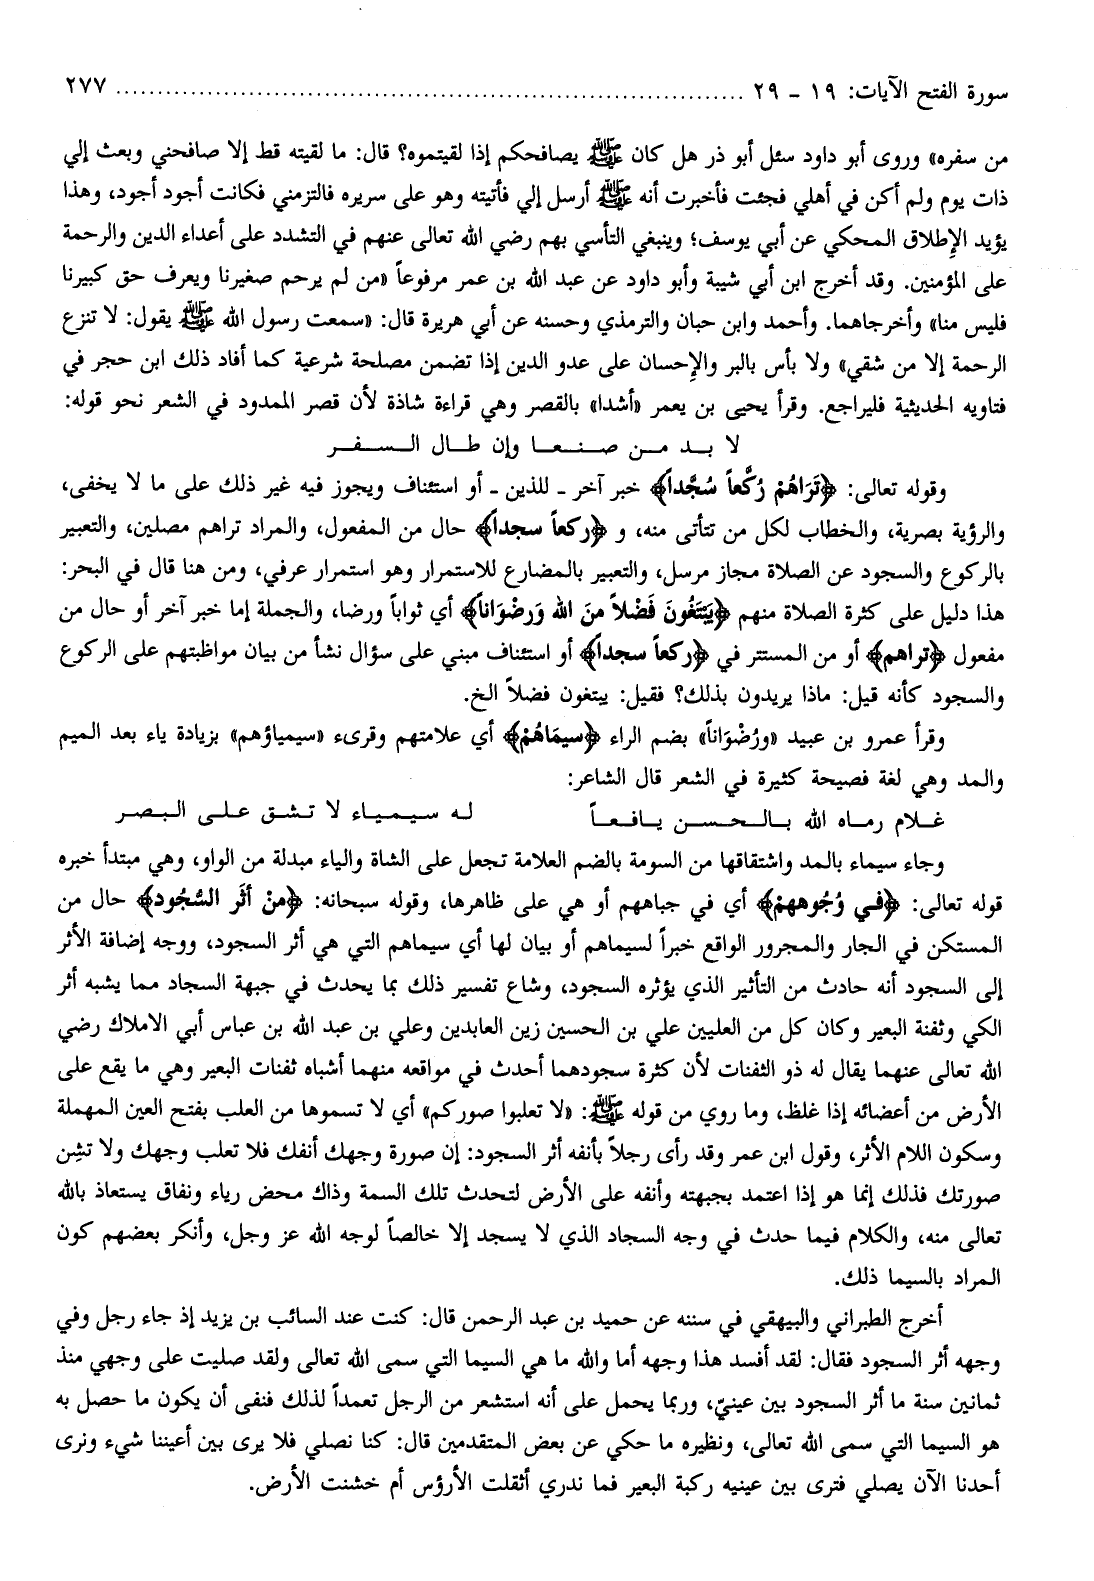 سورة الفتح الآيات: ١٩ - ٢٩ ........................................................................... ٢٧٧
من سفره» وروى أبو داود سئل أبو ذر هل كان ﷺ يصافحكم إذا لقيتموه؟ قال: ما لقيته قط إلا صافحني وبعث إلي
ذات يوم ولم أكن في أهلي فجئت فأخبرت أنه ﷺ أرسل إلي فأتيته وهو على سريره فالتزمني فكانت أجود أجود، وهذا
يؤيد الإطلاق المحكي عن أبي يوسف؛ وينبغي التأسي بهم رضي الله تعالى عنهم في التشدد على أعداء الدين والرحمة
على المؤمنين. وقد أخرج ابن أبي شيبة وأبو داود عن عبد الله بن عمر مرفوعاً «من لم يرحم صغيرنا ويعرف حق كبيرنا
فليس منا» وأخرجاهما. وأحمد وابن حبان والترمذي وحسنه عن أبي هريرة قال: «سمعت رسول الله ﷺ يقول: لا تنزع
الرحمة إلا من شقي» ولا بأس بالبر والإحسان على عدو الدين إذا تضمن مصلحة شرعية كما أفاد ذلك ابن حجر في
فتاويه الحديثية فليراجع. وقرأ يحيى بن يعمر «أشدا» بالقصر وهي قراءة شاذة لأن قصر الممدود في الشعر نحو قوله:
لا بد من صنعا وإن طال السفر
وقوله تعالى: ﴿تَرَاهُمْ رُكَّعاً سُجَّداً﴾ خبر آخر - للذين - أو استئناف ويجوز فيه غير ذلك على ما لا يخفى،
والرؤية بصرية، والخطاب لكل من تتأتى منه، و ﴿ركعاً سجداً﴾ حال من المفعول، والمراد تراهم مصلين، والتعبير
بالركوع والسجود عن الصلاة مجاز مرسل، والتعبير بالمضارع للاستمرار وهو استمرار عرفي، ومن هنا قال في البحر:
هذا دليل على كثرة الصلاة منهم ﴿يَبْتَغُونَ فَضْلاً منَ الله وَرضْوَاناً﴾ أي ثواباً ورضا، والجملة إما خبر آخر أو حال من
مفعول ﴿تراهم﴾ أو من المستتر في ﴿ركعاً سجداً﴾ أو استئناف مبني على سؤال نشأ من بيان مواظبتهم على الركوع
والسجود كأنه قيل: ماذا يريدون بذلك؟ فقيل: يبتغون فضلاً الخ.
وقرأ عمرو بن عبيد «ورُضْوَاناً» بضم الراء ﴿سيمَاهُمْ﴾ أي علامتهم وقرىء «سيمياؤهم» بزيادة ياء بعد الميم
والمد وهي لغة فصيحة كثيرة في الشعر قال الشاعر:
غلام رماه الله بالحسن يافعاً له سيمياء لا تشق على البصر
وجاء سيماء بالمد واشتقاقها من السومة بالضم العلامة تجعل على الشاة والياء مبدلة من الواو، وهي مبتدأ خبره
قوله تعالى: ﴿في وُجُوههمْ﴾ أي في جباههم أو هي على ظاهرها، وقوله سبحانه: ﴿منْ أَثَر السُّجُود﴾ حال من
المستكن في الجار والمجرور الواقع خبراً لسيماهم أو بيان لها أي سيماهم التي هي أثر السجود، ووجه إضافة الأثر
إلى السجود أنه حادث من التأثير الذي يؤثره السجود، وشاع تفسير ذلك بما يحدث في جبهة السجاد مما يشبه أثر
الكي وثفنة البعير وكان كل من العليين علي بن الحسين زين العابدين وعلي بن عبد الله بن عباس أبي الاملاك رضي
الله تعالى عنهما يقال له ذو الثفنات لأن كثرة سجودهما أحدث في مواقعه منهما أشباه ثفنات البعير وهي ما يقع على
الأرض من أعضائه إذا غلظ، وما روي من قوله ﷺ: «لا تعلبوا صوركم» أي لا تسموها من العلب بفتح العين المهملة
وسكون اللام الأثر، وقول ابن عمر وقد رأى رجلاً بأنفه أثر السجود: إن صورة وجهك أنفك فلا تعلب وجهك ولا تشِن
صورتك فذلك إنما هو إذا اعتمد بجبهته وأنفه على الأرض لتحدث تلك السمة وذاك محض رياء ونفاق يستعاذ بالله
تعالى منه، والكلام فيما حدث في وجه السجاد الذي لا يسجد إلا خالصاً لوجه الله عز وجل، وأنكر بعضهم كون
المراد بالسيما ذلك.
أخرج الطبراني والبيهقي في سننه عن حميد بن عبد الرحمن قال: كنت عند السائب بن يزيد إذ جاء رجل وفي
وجهه أثر السجود فقال: لقد أفسد هذا وجهه أما والله ما هي السيما التي سمى الله تعالى ولقد صليت على وجهي منذ
ثمانين سنة ما أثر السجود بين عينيّ، وربما يحمل على أنه استشعر من الرجل تعمداً لذلك فنفى أن يكون ما حصل به
هو السيما التي سمى الله تعالى، ونظيره ما حكي عن بعض المتقدمين قال: كنا نصلي فلا يرى بين أعيننا شيء ونرى
أحدنا الآن يصلي فترى بين عينيه ركبة البعير فما ندري أثقلت الأرؤس أم خشنت الأرض.